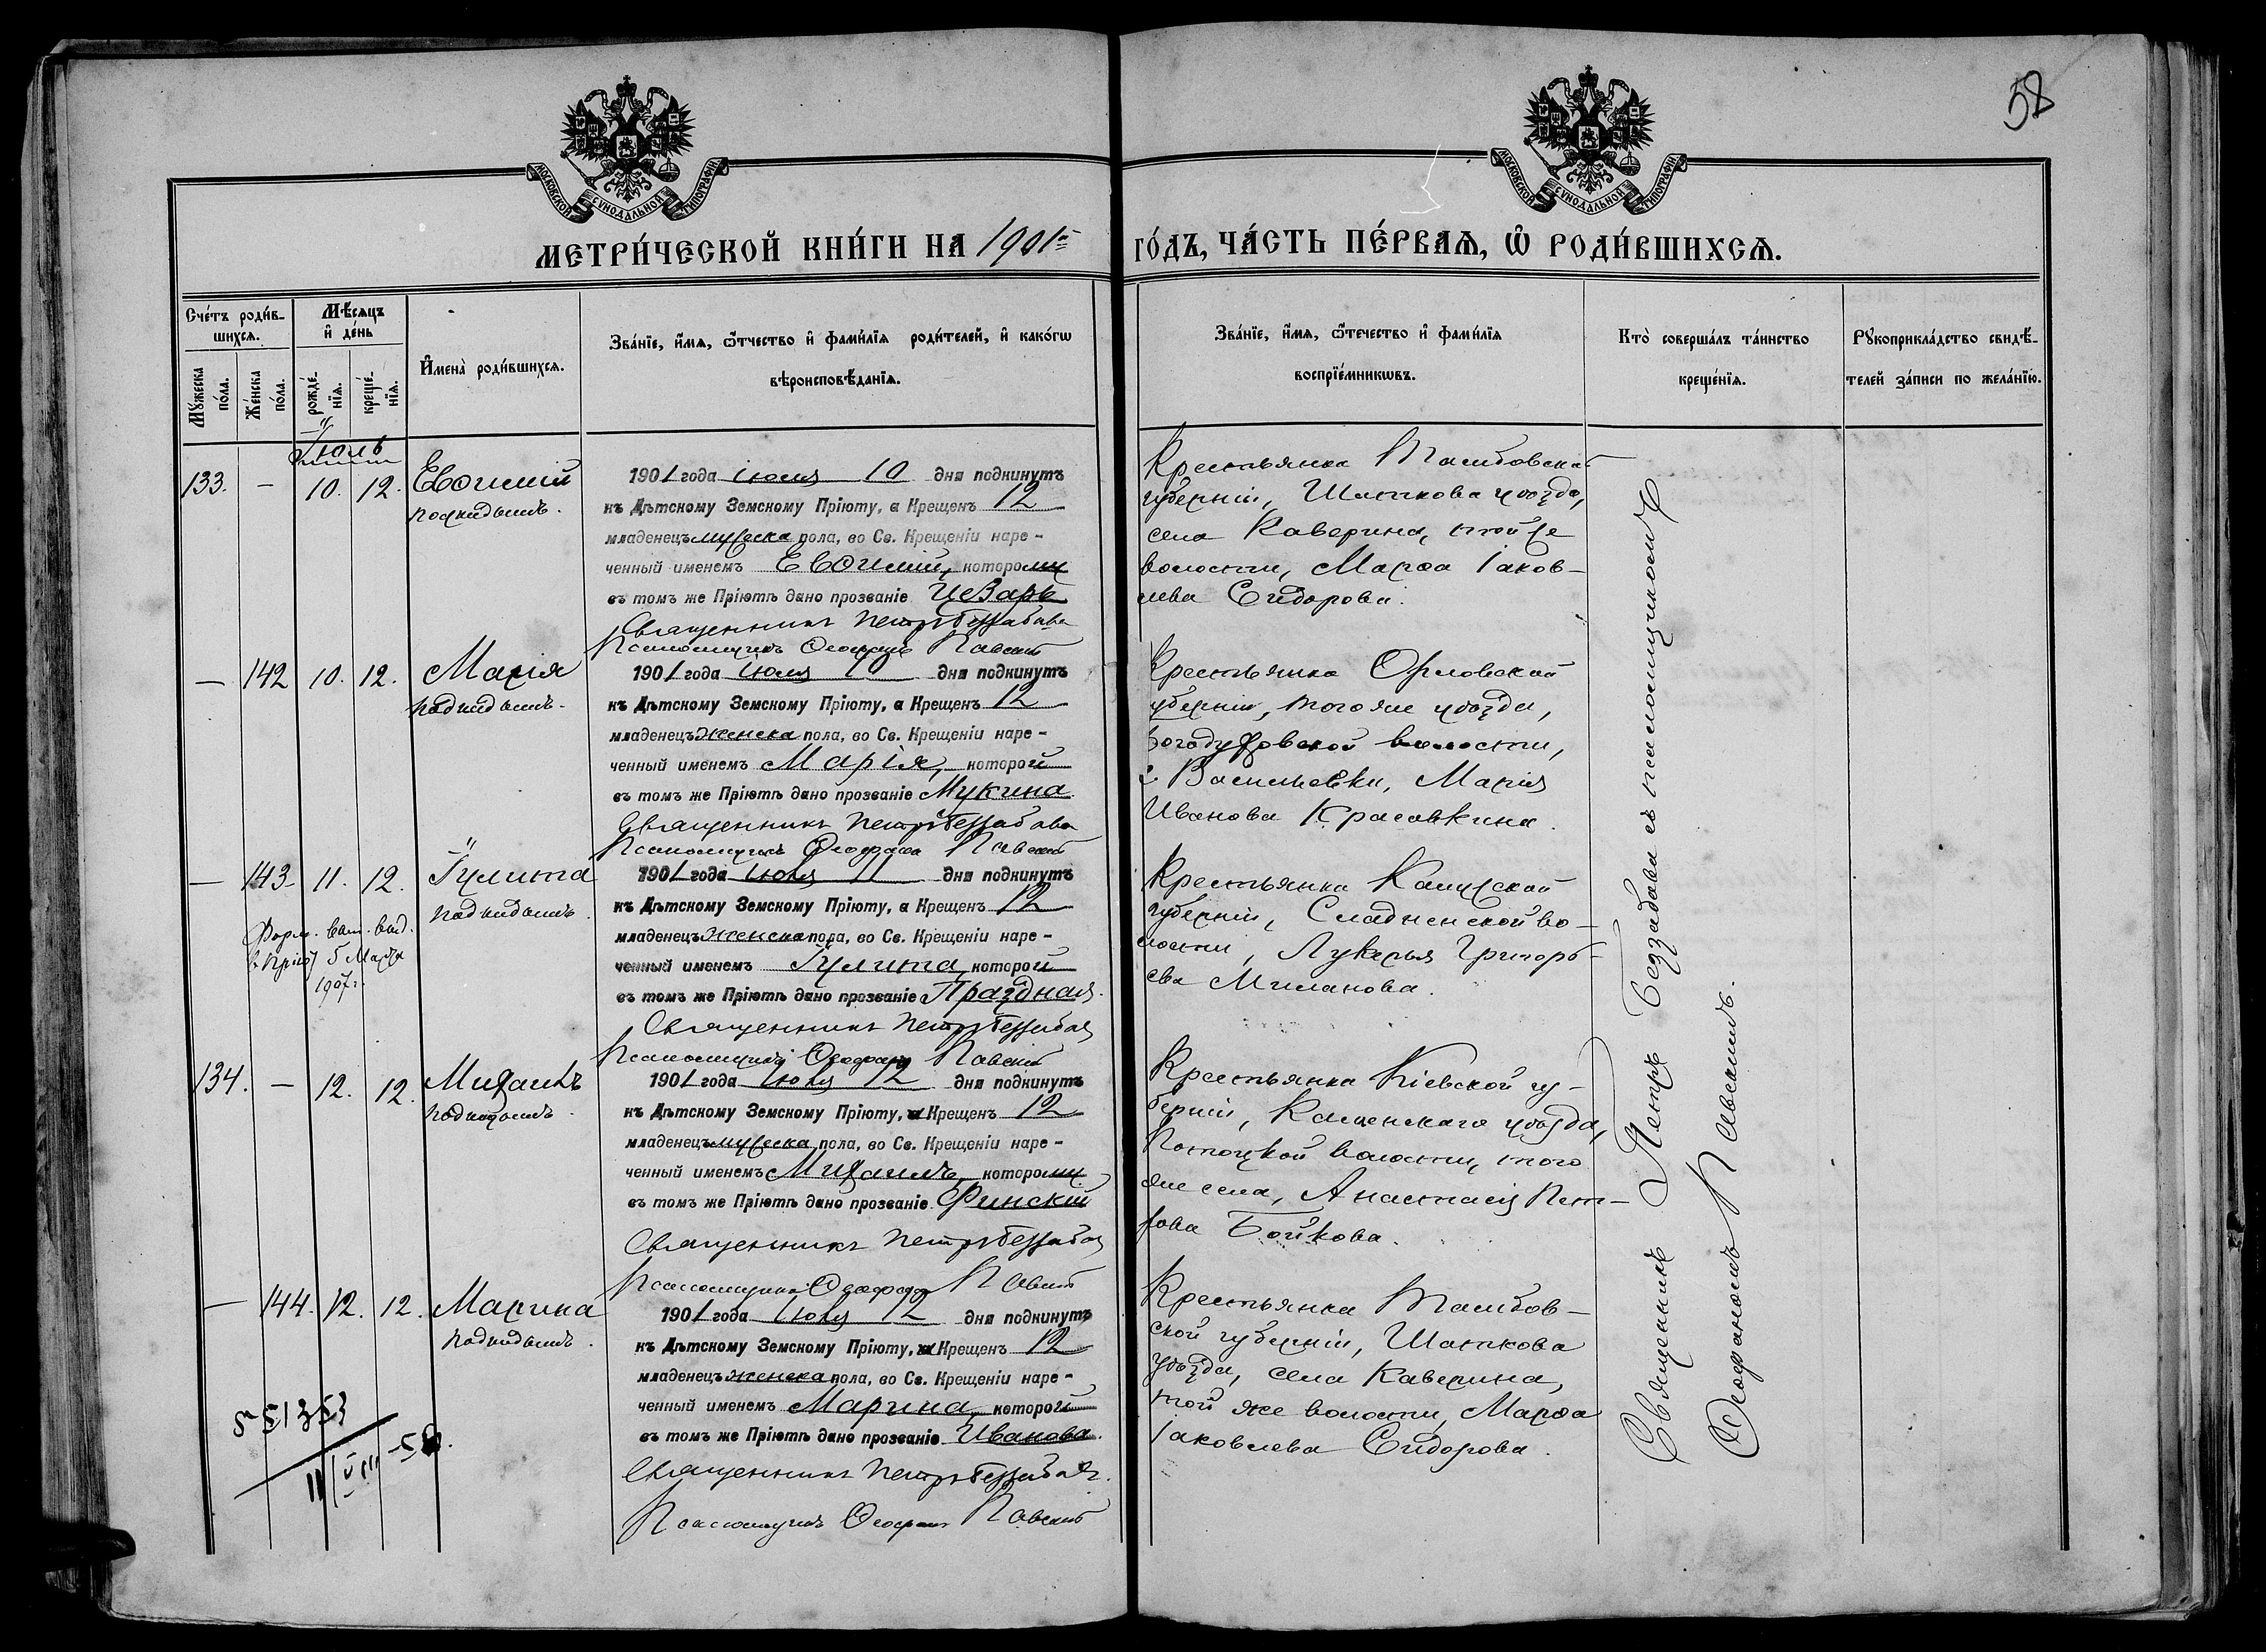 58
МОСКОВСКОЙ СѴНОДАЛЬНОЙ ТИПОГРАФІИ
МОСКОВСКОЙ СѴНОДАЛЬНОЙ ТИПОГРАФІИ
МЕТРИ́ЧЕСКОЙ КНИ́ГИ НА 1901
ГО́ДЪ, ЧА́СТЬ ПЕ́РВАѦ, Ѡ҆ РОДИ́ВШИХСѦ.
Сче́тъ роди́в-
шихсѧ.
Мꙋ́жеска по́ла.
Же́нска по́ла.
Мѣ́сѧцъ
и҆ де́нь
рожде́-нїѧ.
креще́-нїѧ.
И҆мена̀ роди́вшихсѧ.
Зва́нїе, и҆́мѧ, ѻ҆́тчество и҆ фами́лїѧ роди́телей, и҆ како́гѡ
вѣроисповѣ́данїѧ.
Зва́нїе, и҆́мѧ, ѻ҆те́чество и҆ фами́лїѧ
воспрїе́мникѡвъ.
Кто̀ соверша́лъ та́инство
креще́нїѧ.
Рꙋкоприкла́дство свидѣ́-
телей за́писи по жела́нїю.
Іюль
133. — 10. 12. Евѳимій
подкидышъ.
1901 года іюля 10 дня подкинутъ
къ Дѣтскому Земскому Пріюту, а Крещенъ 12
младенецъ мужеска пола, во Св. Крещеніи наре-
ченный именемъ Евѳимій, которому
въ томъ же Пріютѣ дано прозваніе Цезарь
Священникъ Петръ Беззабава
Псаломщикъ Ѳеофанъ Павскій
Крестьянка Тамбовской
губерніи, Шаткова уѣзда,
села Каверина, той же
волости, Марѳа Іаков-
лева Сидорова.
— 142 10. 12. Марія
подкидышъ.
1901 года іюля 10 дня подкинутъ
къ Дѣтскому Земскому Пріюту, а Крещенъ 12
младенецъ женска пола, во Св. Крещеніи наре-
ченный именемъ Марія, которой
въ томъ же Пріютѣ дано прозваніе Мукина
Священникъ Петръ Беззабава
Псаломщикъ Ѳеофанъ Павскій
Крестьянка Орловской
губерніи, того же уѣзда,
волости,
Васильевки, Марія
Иванова Красавкина.
— 143 11. 12. Іулита
подкидышъ.
Форм. вып. выд.
в Пріют 5 Марта
1907 г.
1901 года іюля 11 дня подкинутъ
къ Дѣтскому Земскому Пріюту, а Крещенъ 12
младенецъ женска пола, во Св. Крещеніи наре-
ченный именемъ Іулита, которой
въ томъ же Пріютѣ дано прозваніе Праздная.
Священникъ Петръ Беззабава
Псаломщикъ Ѳеофанъ Павскій
Крестьянка Калужской
губерніи, Сладненской во-
лости, Лукерья Григорь-
ева Миланова.
134. — 12. 12. Михаилъ
подкидышъ.
1901 года іюля 12 дня подкинутъ
къ Дѣтскому Земскому Пріюту, а Крещенъ 12
младенецъ мужеска пола, во Св. Крещеніи наре-
ченный именемъ Михаилъ, которому
въ томъ же Пріютѣ дано прозваніе Финскій
Священникъ Петръ Беззабава
Псаломщикъ Ѳеофанъ Павскій
Крестьянка Кіевской гу-
берніи, уѣзда,
Потоцкой волости, того
же села, Анастасія Пет-
рова Бойкова.
— 144. 12. 12. Марина
подкидышъ.
1901 года іюля 12 дня подкинутъ
къ Дѣтскому Земскому Пріюту, а Крещенъ 12
младенецъ женска пола, во Св. Крещеніи наре-
ченный именемъ Марина, которой
въ томъ же Пріютѣ дано прозваніе Иванова.
Священникъ Петръ Беззабава.
Псаломщикъ Ѳеофанъ Павскій
Крестьянка Тамбов-
ской губерніи, Шаткова
уѣзда, села Каверина,
той же волости, Марѳа
Іаковлева Сидорова.
Священникъ Петръ Беззабава съ псаломщикомъ
Ѳеофаномъ Павскимъ.